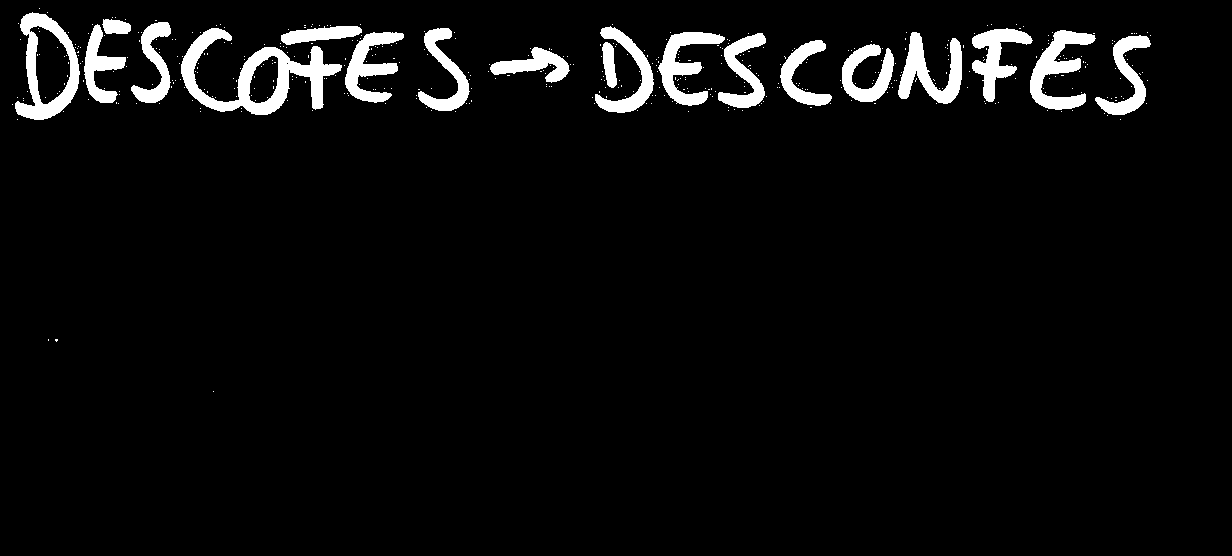 DESCOFES → DESCONFES